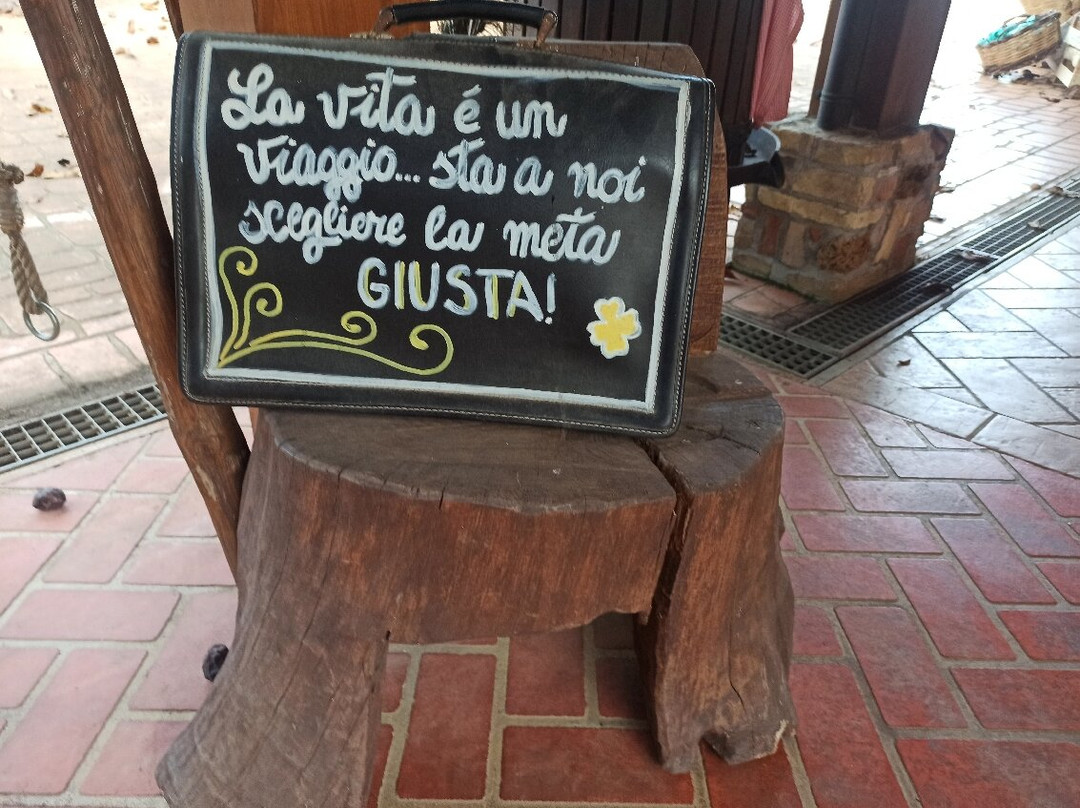 La vita é un
viaggio... sta a noi
scegliere la meta
GIUSTA!